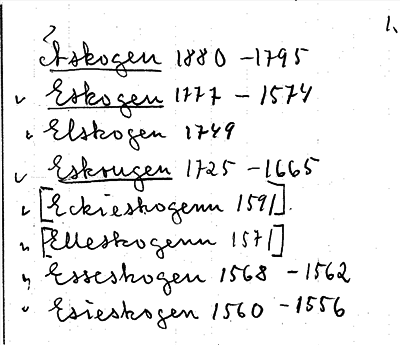 1.
? Åskogen 1880 – 1795
v Eskogen 1777 – 1574
" Elskogen 1749
v Eskougen 1725 – 1665
" [Eckieskogenn 1591].
" [Elleskogenn 1571]
" Esseskogen 1568 – 1562
" Esieskogen 1560 – 1556